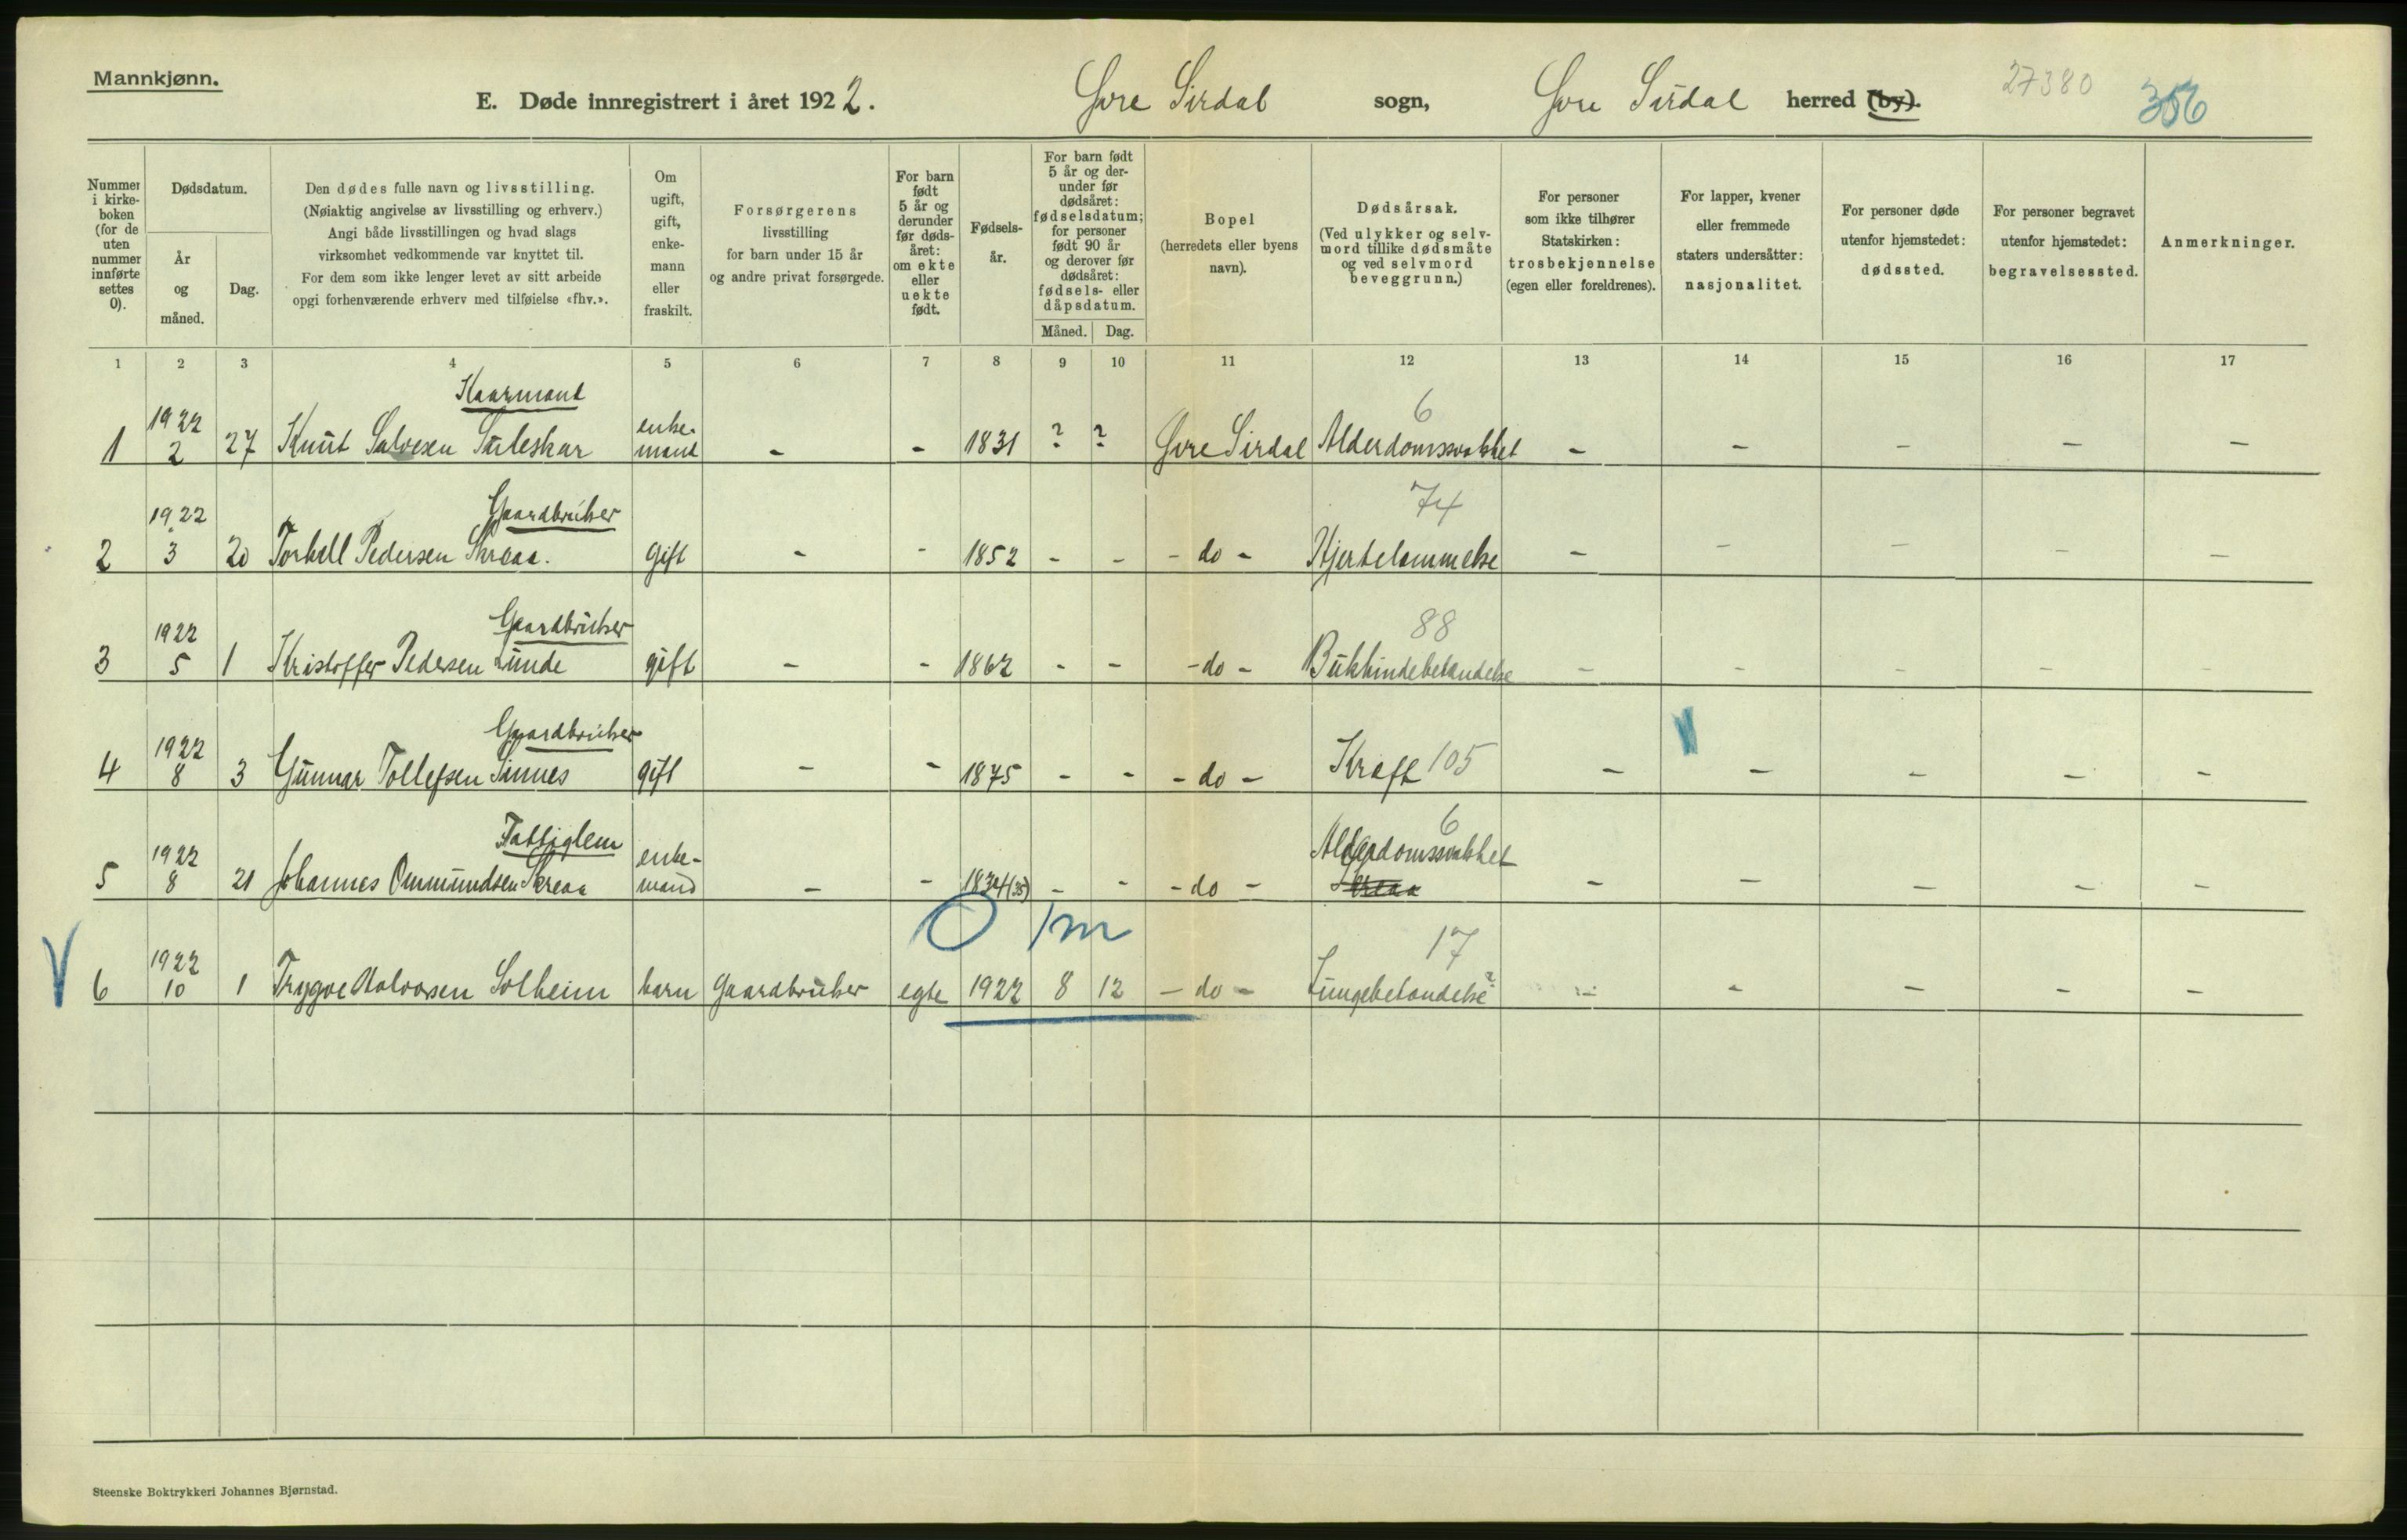 Mannkjønn.
E. Døde innregistrert i året 1922. Øvre Sirdal sogn, Øvre Sirdal herred (by). 27380 356
Nummer i kirke-boken (for de uten nummer innførte settes 0).
Dødsdatum.
År og måned.
Dag.
Den dødes fulle navn og livsstilling.
(Nøiaktig angivelse av livsstilling og erhverv.)
Angi både livsstillingen og hvad slags
virksomhet vedkommende var knyttet til.
For dem som ikke lenger levet av sitt arbeide
opgi forhenværende erhverv med tilføielse «fhv.».
Om
ugift,
gift,
enke-
mann
eller
fraskilt.
Forsørgerens
livsstilling
for barn under 15 år
og andre privat forsørgede.
For barn
født
5 år og
derunder
før døds-
året:
om ekte
eller
uekte
født.
Fødsels-
år.
For barn født
5 år og der-
under før
dødsåret:
fødselsdatum;
for personer
født 90 år
og derover før
dødsåret:
fødsels- eller
dåpsdatum.
Måned. Dag.
Bopel
(herredets eller byens
navn).
Dødsårsak.
(Ved ulykker og selv-
mord tillike dødsmåte
og ved selvmord
beveggrunn.)
For personer
som ikke tilhører
Statskirken:
trosbekjennelse
(egen eller foreldrenes).
For lapper, kvener
eller fremmede
staters undersåtter:
nasjonalitet.
For personer døde
utenfor hjemstedet:
dødssted.
For personer begravet
utenfor hjemstedet:
begravelsessted.
Anmerkninger.
1 2 3 4 5 6 7 8 9 10 11 12 13 14 15 16 17
Kaarmand
1922 enke- 6
1 2 27 Knut Salvesen Suleskar mand - - 1831 ? ? Øvre Sirdal Alderdomssvakhet - - - - -
Gaardbruker
1922 74
2 3 20 Torkell Pedersen Skreaa. gift - - 1852 - - - do - Hjertelammelse - - - - -
Gaardbruker
1922 88
3 5 1 Kristoffer Pedersen Lunde gift - - 1862 - - - do - Bukhindebetændelse - - - - -
Gaardbruker
1922
4 8 3 Gunnar Tollefsen Sinnes gift - - 1875 - - - do - Kræft 105 - - - - -
Fattiglem
1922 enke- Alderdomssvakhet 6
5 8 21 Johannes Ommundsen Skreaa mand - - 1834(35) - - - do - Skreaa - - - - -
0 1m
1922 17
6 10 1 Trygve Halvorsen Solheim barn Gaardbruker egte 1922 8 12 - do - Lungebetændelse? - - - - -
Steenske Boktrykkeri Johannes Bjørnstad.